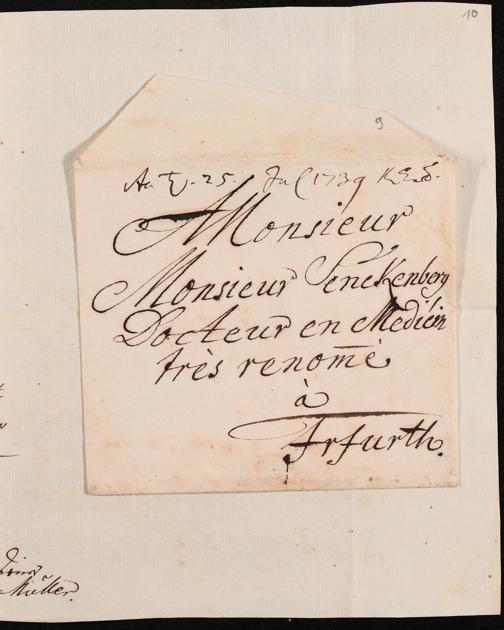 10
9
25. Jul 1739
A Monsieur
Monsieur Senckenberg
Docteur en Medicin
très renom̄é
à
Erfurth.
Müller.